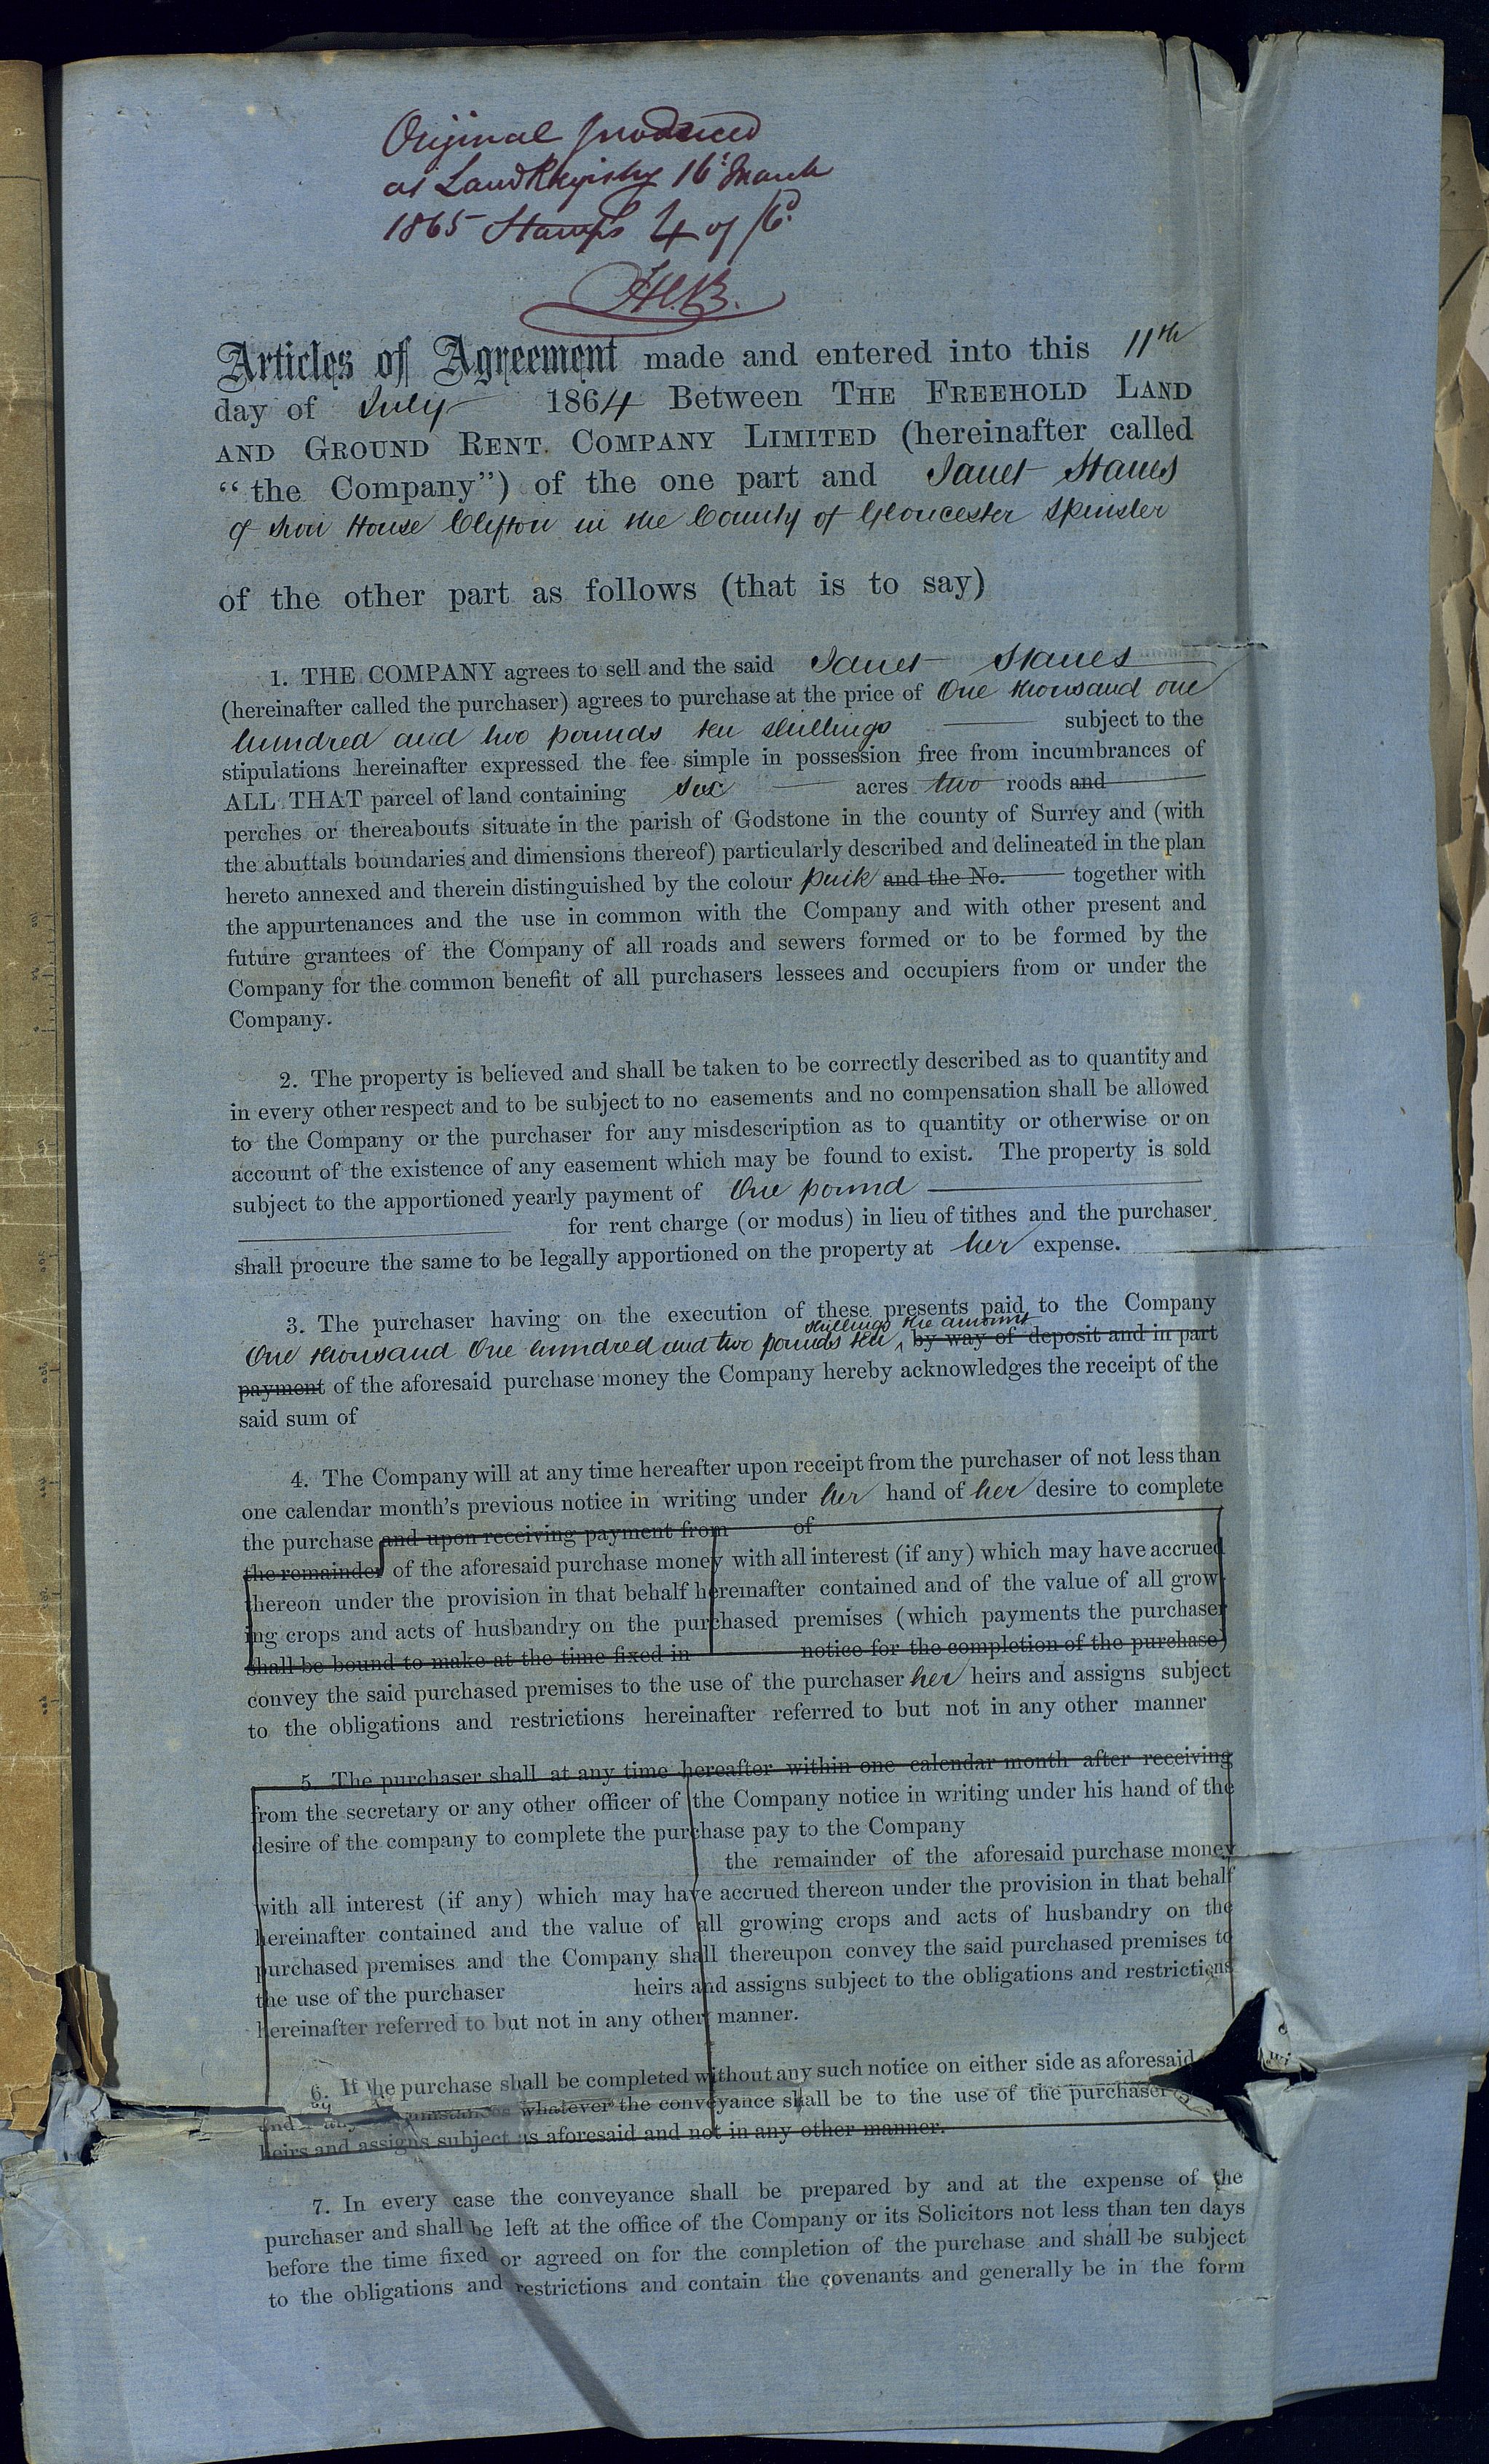 Original produced
at Land Registry 16th March
1865 Stamps 4 of /6d
Articles of Agreement made and entered into this 11th
day of July 1864 Between THE FREEHOLD LAND
AND GROUND RENT COMPANY LIMITED (hereinafter called
"the Company") of the one part and Janet Stanes
of House Clifton in the County of Gloucester Spinster
of the other part as follows (that is to say)
1. THE COMPANY agrees to sell and the said Janet Stanes
(hereinafter called the purchaser) agrees to purchase at the price of One thousand one
hundred and two pounds ten shillings subject to the
stipulations hereinafter expressed the fee simple in possession free from incumbrances of
ALL THAT parcel of land containing six acres two roods and
perches or thereabouts situate in the parish of Godstone in the county of Surrey and (with
the abuttals boundaries and dimensions thereof) particularly described and delineated in the plan
hereto annexed and therein distinguished by the colour pink and the No. together with
the appurtenances and the use in common with the Company and with other present and
future grantees of the Company of all roads and sewers formed or to be formed by the
Company for the common benefit of all purchasers lessees and occupiers from or under the
Company.
2. The property is believed and shall be taken to be correctly described as to quantity and
in every other respect and to be subject to no easements and no compensation shall be allowed
to the Company or the purchaser for any misdescription as to quantity or otherwise or on
account of the existence of any easement which may be found to exist. The property is sold
subject to the apportioned yearly payment of One pound
for rent charge (or modus) in lieu of tithes and the purchaser
shall procure the same to be legally apportioned on the property at her expense.
3. The purchaser having on the execution of these presents paid to the Company
shillings the amount
One thousand One hundred and two pounds ten ‸ by way of deposit and in part
payment of the aforesaid purchase money the Company hereby acknowledges the receipt of the
said sum of
4. The Company will at any time hereafter upon receipt from the purchaser of not less than
one calendar month's previous notice in writing under her hand of her desire to complete
the purchase and upon receiving payment from of
the remainder of the aforesaid purchase money with all interest (if any) which may have accrued
thereon under the provision in that behalf hereinafter contained and of the value of all grow-
ing crops and acts of husbandry on the purchased premises (which payments the purchaser
shall be bound to make at the time fixed in notice for the completion of the purchase)
convey the said purchased premises to the use of the purchaser her heirs and assigns subject
to the obligations and restrictions hereinafter referred to but not in any other manner
5. The purchaser shall at any time hereafter within one calendar month after receiving
from the secretary or any other officer of the Company notice in writing under his hand of the
desire of the company to complete the purchase pay to the Company
the remainder of the aforesaid purchase money
with all interest (if any) which may have accrued thereon under the provision in that behalf
hereinafter contained and the value of all growing crops and acts of husbandry on the
purchased premises and the Company shall thereupon convey the said purchased premises to
the use of the purchaser heirs and assigns subject to the obligations and restrictions
hereinafter referred to but not in any other manner.
6. If the purchase shall be completed without any such notice on either side as aforesaid
whatever the conveyance shall be to the use of the purchaser
heirs and assigns subject as aforesaid and not in any other manner.
7. In every case the conveyance shall be prepared by and at the expense of the
purchaser and shall be left at the office of the Company or its Solicitors not less than ten days
before the time fixed or agreed on for the completion of the purchase and shall be subject
to the obligations and restrictions and contain the covenants and generally be in the form